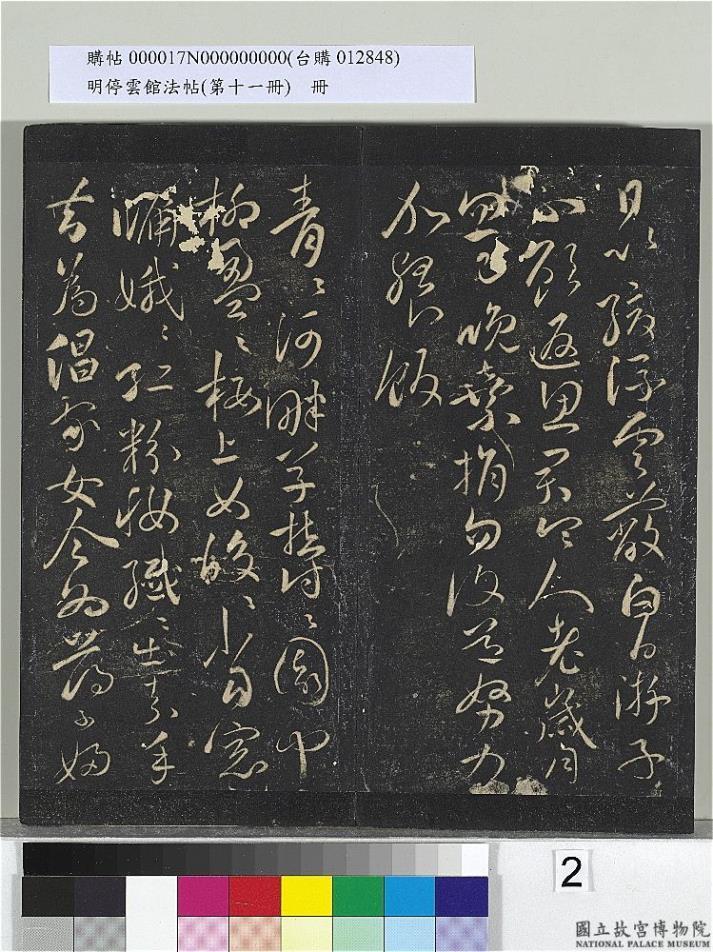 購帖 000017N000000000(台購 012848)
明停雲館法帖(第十一冊) 冊
日以緩浮雲蔽白日游子
不顧返思君令人老歲月
忽已晚棄捐勿復道努力
加餐飯
青〻河畔草鬱〻園中
柳盈〻樓上女皎〻當窗
牖娥〻紅粉妝纖〻出素手
昔為倡家女今為蕩子婦
2
國立故宮博物院
NATIONAL PALACE MUSEUM